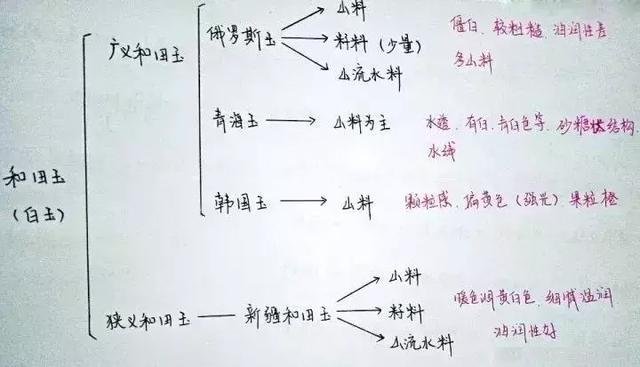 和田玉
（白玉）
广义和田玉
俄罗斯玉
山料
籽料（少量）
山流水料
僵白、较粗糙、油润性差
多山料
青海玉
山料为主
水透、有白、青白色等、砂糖状结构、
水线
韩国玉
山料
颗粒感、偏黄色（强光）果粒橙
狭义和田玉
新疆和田玉
山料
籽料
山流水料
暖色调黄白色、细腻温润
油润性好